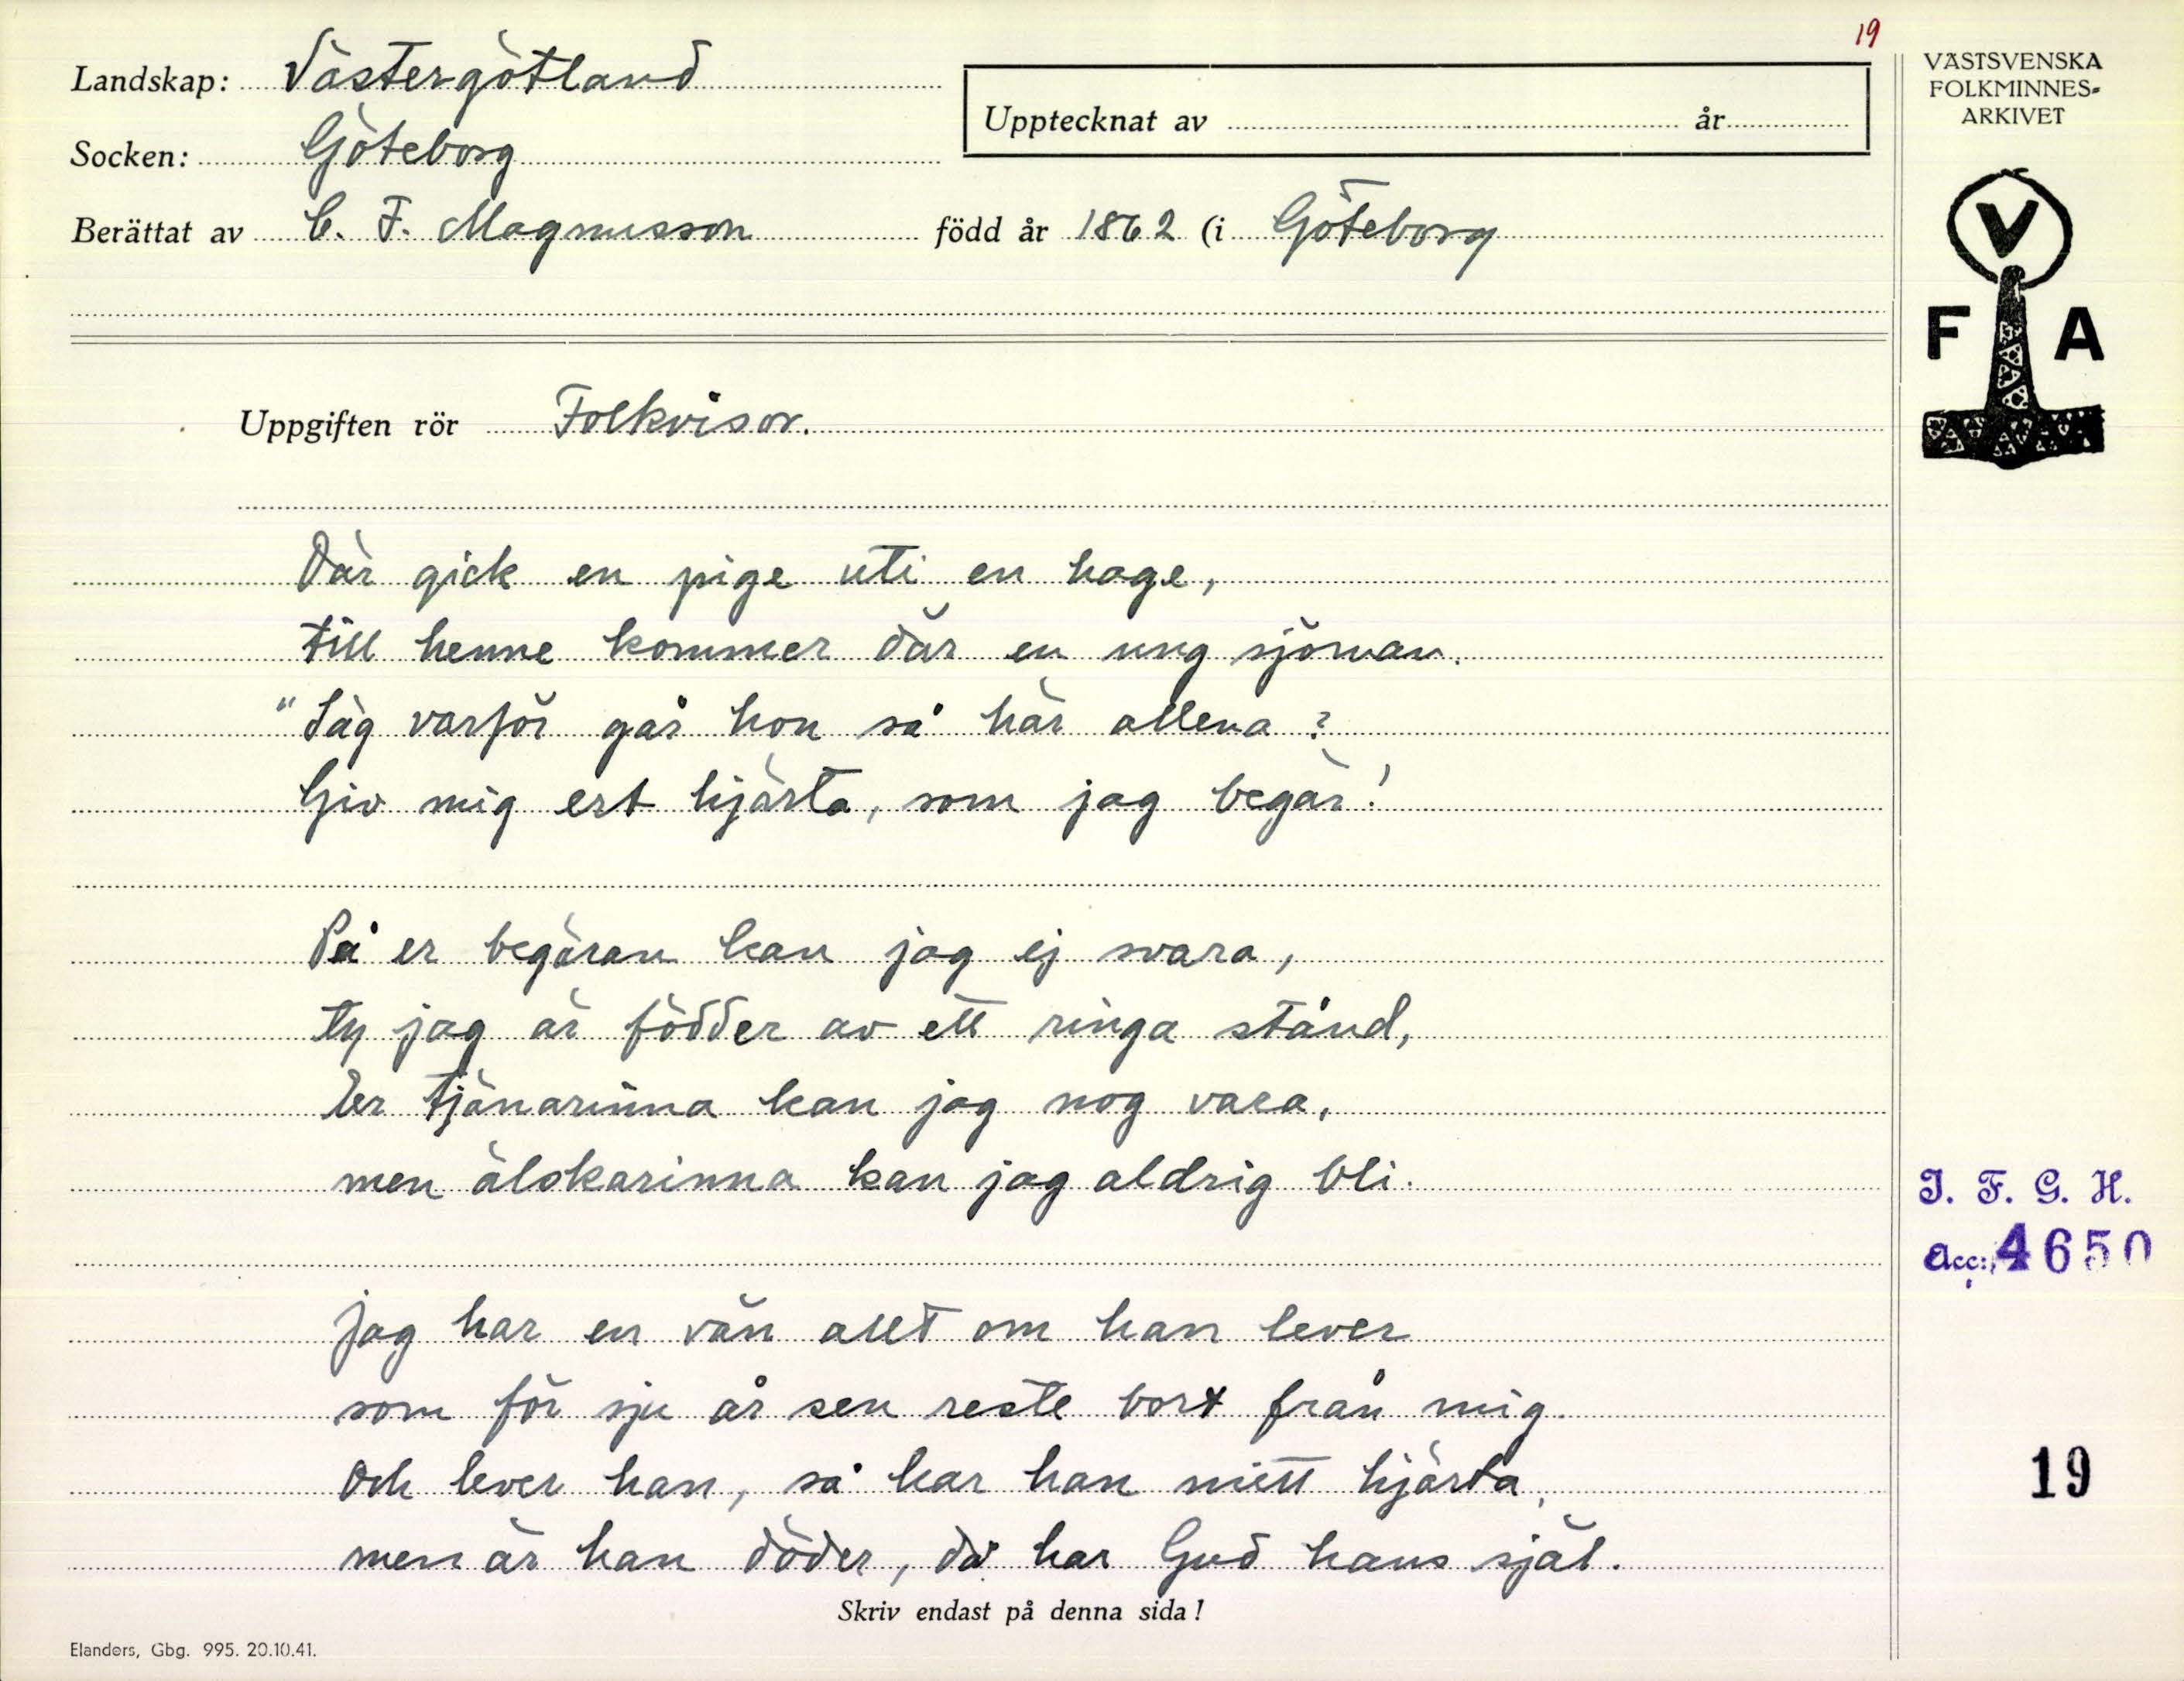 19
Landskap: Västergötland
Socken: Göteborg
Upptecknat av år
Berättat av C. F. Magnusson född år 1862 (i Göteborg
VÄSTSVENSKA
FOLKMINNES-
ARKIVET
V
F A
Uppgiften rör Folkvisor.
Där gick en pige uti en hage,
till henne kommer där en ung sjöman.
"Säg varför går hon så här allena?
Giv mig ert hjärta, som jag begär!
På er begäran kan jag ej svara,
ty jag är födder av ett ringa stånd,
Er tjänarinna kan jag nog vara,
men älskarinna kan jag aldrig bli.
Jag har en vän allt om han lever
som för sju år sen reste bort från mig.
Och lever han, så har han mitt hjärta,
men är han döder, då har Gud hans själ.
I. F. G. H.
Acc: 4650
19
Skriv endast på denna sida!
Elanders, Gbg. 995. 20.10.41.